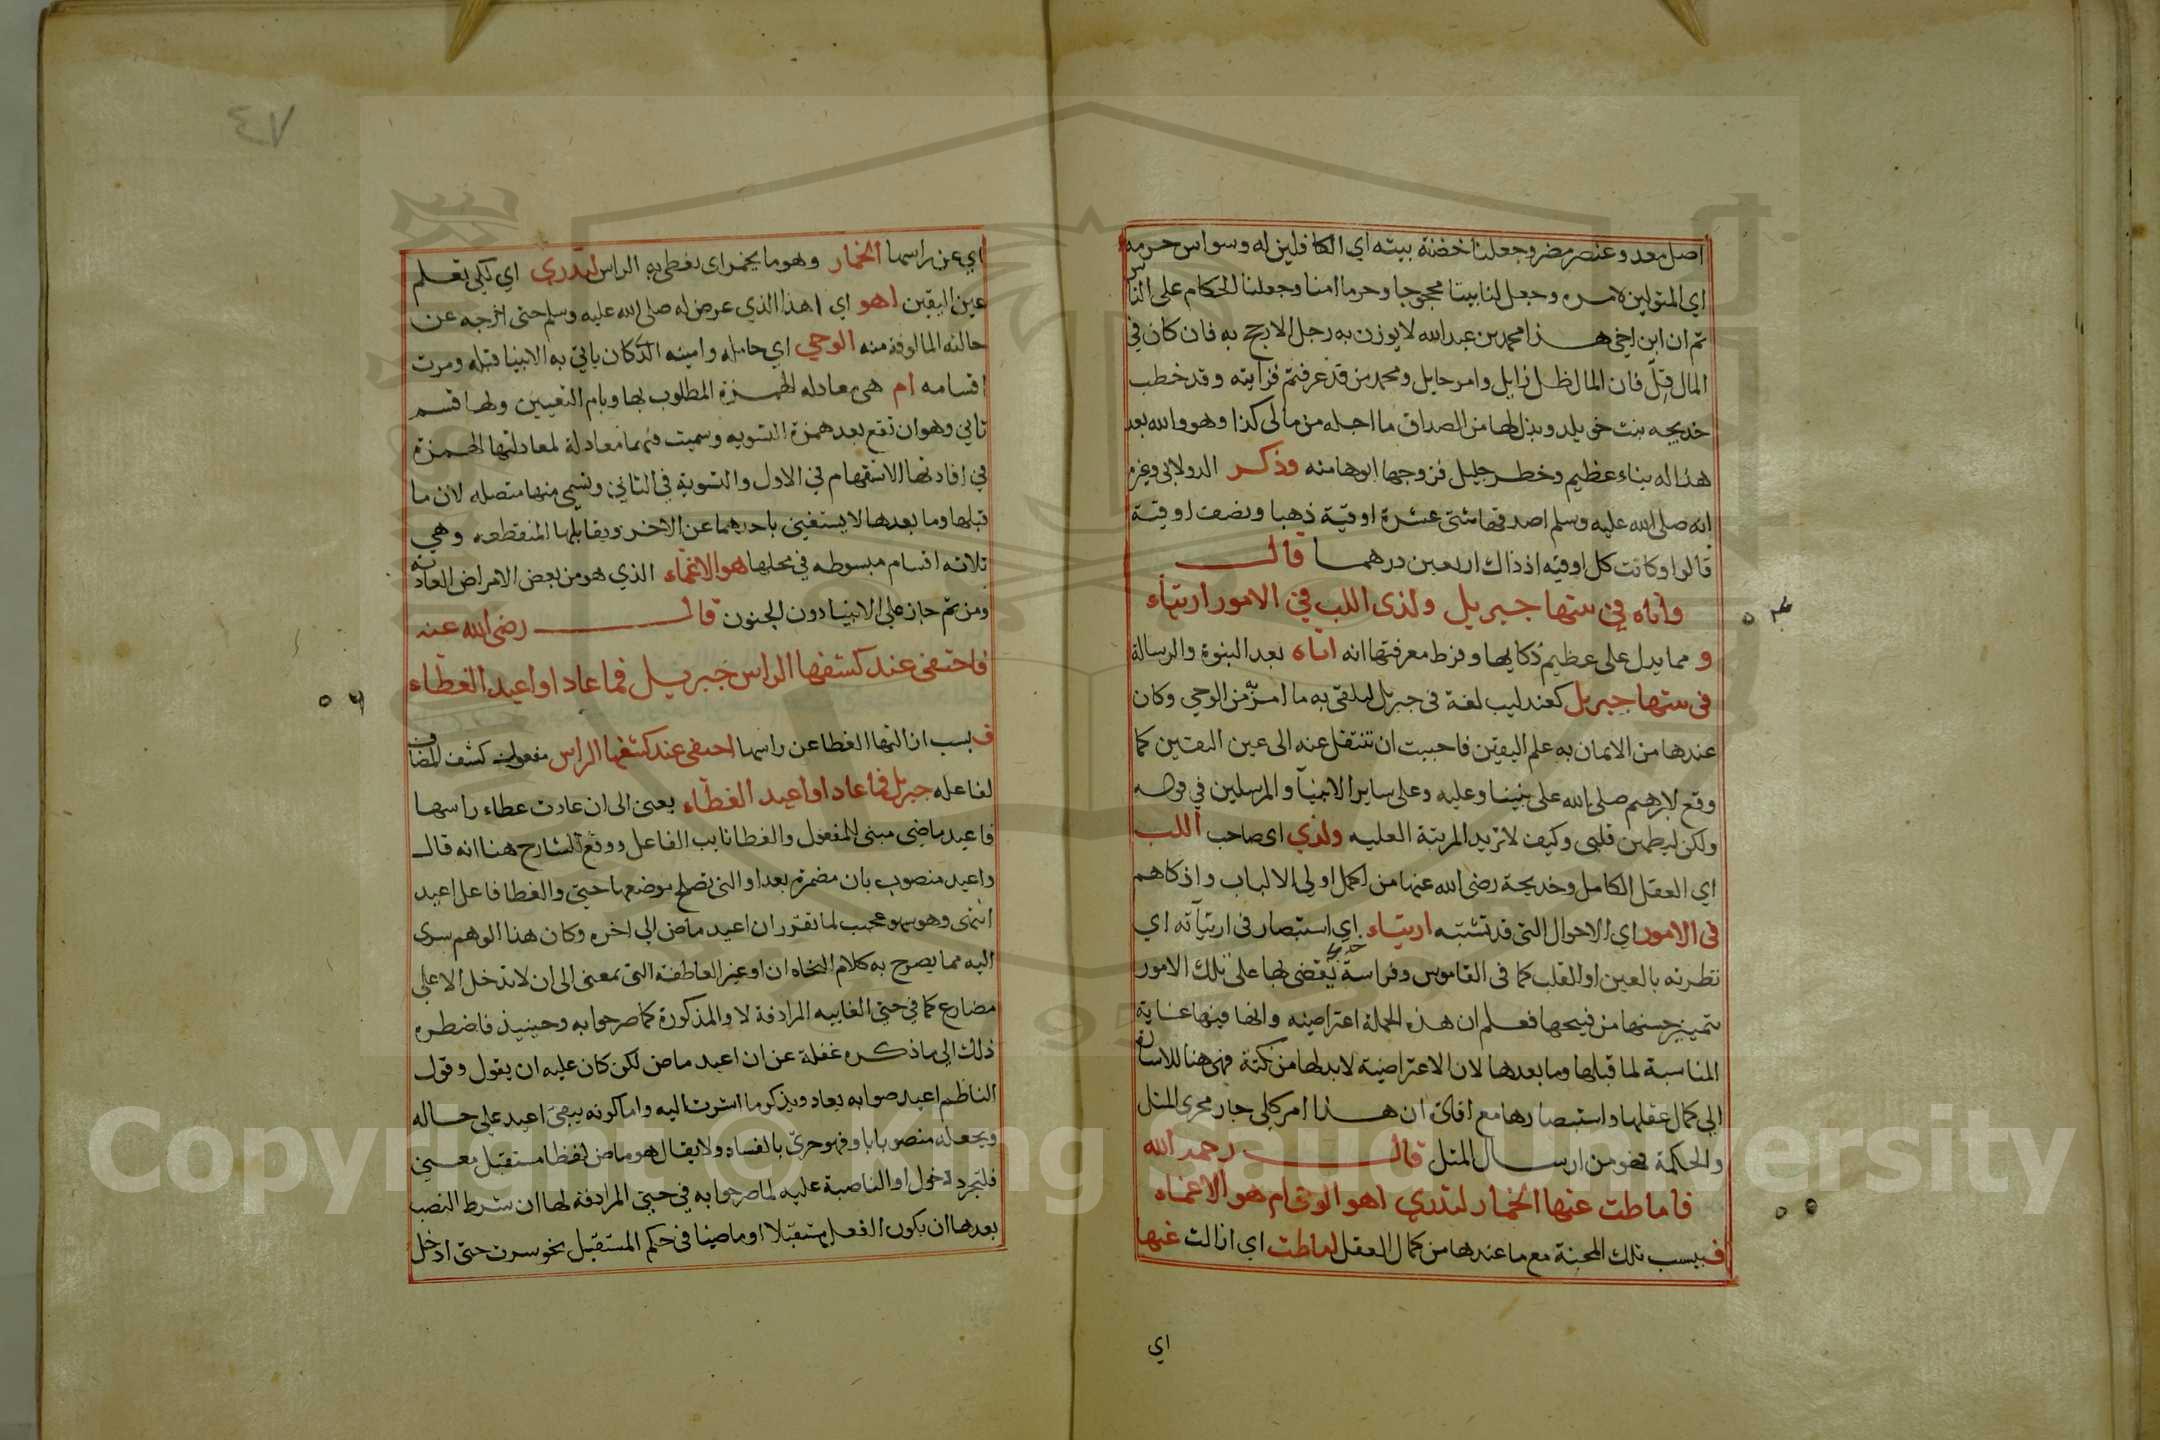 اصل معد وعنصر مضر وجعلنا خضنة بيته اي الكافلين له وسواس حرمه
اي المتولين لامره وجعل لنا بيتا محجوجا وحرما امنا وجعلنا الحكام على الناس
ثم ان ابن اخي هذا محمد بن عبد الله لا يوزن به رجل الا رجح به فان كان في
المال قل فان المال ظل زايل وامر حايل ومحمد من قد عرفتم قرابته وقد خطب
خديجه بنت خويلد وبذل لها من الصداق ما اجله من مالي كذا وهو والله بعد
هذا له نباء عظيم وخطر جليل فزوجها ابوها منه وذكر الدولابي وغيره
انه صلى الله عليه وسلم اصدقها ثنتى عشرة اوقية ذهبا ونصف اوقية
قالوا وكانت كل اوقيه اذ ذاك اربعين درهما قال
واتاه في بيتها جبريل ولذى اللب في الامور ارتياء
٥٤
و مما يدل على عظيم ذكايها وفرط معرفتها انه اتاه بعد النبوة والرسالة
في بيتها جبريل كعندليب لغة في جبريل ليلقى به ما امر من الوحي وكان
عندها من الايمان به علم اليقين فاحببت ان تنتقل عنه الى عين اليقين كما
وقع لابرهيم صلى الله على نبينا وعليه وعلى ساير الانبيآ والمرسلين في قوله
ولكن ليطمئن قلبى وكيف لا تريد المرتبة العليه ولذي اى صاحب اللب
اي العقل الكامل وخديجة رضى الله عنها من اكمل اولى الالباب واذكاهم
في الامور اي الاحوال التى قد تشتبه ارتياء اي استبصار في ارتيآته اي
نظرته بالعين او القلب كما في القاموس وفراسة يقضى بها على تلك الامور
بتمييز حسنها من قبيحها فعلم ان هذه الجملة اعتراضيه وانها فيها غاية
المناسبة لما قبلها وما بعدها لان الاعتراضية لابد لها من نكتة فهى هنا للاشارة
الى كمال عقلها واستبصارها مع افادة ان هذا امر كلى جار مجرى المثل
والحكمة فهو من ارسال المثل قال رحمه الله
فاماطت عنها الخمار لتدري اهو الوحي ام هو الاغماء
٥٥
فبسبب تلك المحبة مع ما عندها من كمال العقل اماطت اي ازالت عنها
اي
٤٧
اي عن راسها الخمار وهو ما يخمر اى يغطى به الراس لتدري اي لكى تعلم
عين اليقين اهو اي اهذا الذي عرض له صلى الله عليه وسلم حتى اخرجه عن
حالته المالوفة منه الوحي اي حامله وامينه الذي كان ياتي به الانبيا قبله ومرت
اقسامه ام هى معادله لهمزة المطلوب بها وبام التعيين ولها قسم
ثاني وهو ان تقع بعد همزة التسويه وسميت فيهما معادلة لمعادلتها الهمزة
في افادتها الاستفهام في الاول والتسوية في الثاني وتسمى منها متصله لان ما
قبلها وما بعدها لا يستغنى باحدهما عن الاخر ويقابلها المنقطعه وهي
ثلاثه اقسام مبسوطه في محلها هو الاغماء الذي هو من بعض الامراض العادية
ومن ثم جاز على الانبيا دون الجنون قال رضى الله عنه
فاختفى عند كشفها الراس جبريل فما عاد او اعيد الغطاء
٥٦
فبسبب ازالتها الغطا عن راسها اختفى عند كشفها الراس مفعول كشف المضاف
لفاعله جبريل فما عاد او اعيد الغطاء يعنى الى ان عادت غطاء راسها
فاعيد ماضي مبنى للمفعول والغطا نايب الفاعل ووقع للشارح هنا انه قال
واعيد منصوب بان مضمرة بعد او التى تصلح موضعها حتى والغطا فاعل اعيد
انتهى وهو سهو عجيب لما تقرر ان اعيد ماض الى اخره وكان هذا الوهم سرى
اليه مما يصرح به كلام النحاه ان او غير العاطفة التى بمعنى الى ان لا تدخل الا على
مضارع كما في حتى الغاييه المرادفة لاو المذكورة كما صرحوا به وحينيذ فاضطره
ذلك الى ما ذكره غفلة عن ان اعيد ماض لكن كان عليه ان يقول وقول
الناظم اعيد صوابه يعاد ويذكر ما اشرت اليه واما كونه يبقى اعيد على حاله
ويجعله منصوبا باو فهو حري بالفساد ولا يقال هو ماض لفظا مستقبل معنى
فلتجرد دخول او الناصبة عليه لما صرحوا به في حتى المرادفة لها ان شرط النصب
بعدها ان يكون الفعل مستقبلا او ماضيا في حكم المستقبل نحو سرت حتى ادخل
Copyright © King Saud University